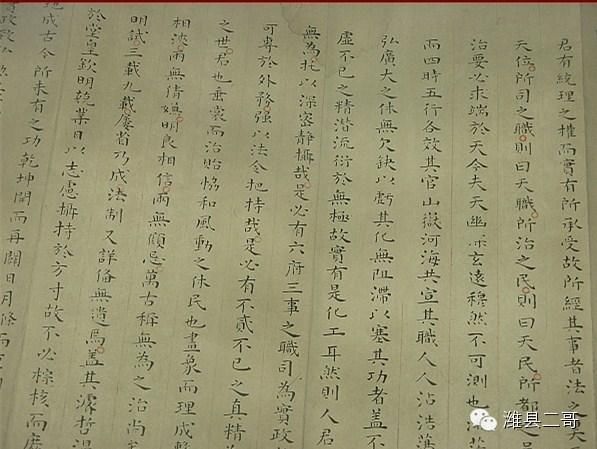 君有統理之權而實有所承受故所經其事者法之天
天位所司之職則曰天職所治之民則曰天民所都之邑
治要必求端於天今夫天幽深玄遠穆然不可測也渺茫
而四時五行各效其官山嶽河海共宣其職人人沾浩蕩
弘廣大之休無欠缺以虧其化無阻滯以塞其功者蓋不
虛不已之精潛流衍於無極故實有是化工耳然則人君
無為托以深密靜攝哉是必有六府三事之職司為實政
可專於外務強以法令把持哉是必有不貳不已之真精
之世君也垂裳而治貽協和風動之休民也畫象而理成擊
相浹兩無猜嫌明良相信兩無顧忌萬古稱無為之治尚矣
明試三載九載屢省功成法制又詳備無遺焉蓋其濬哲溫
於堂皇欽明兢業日以志慮攝持於方寸故不必綜核而庶
底成古今所未有之功乾坤開而再闢日月滌而重
濰县二哥